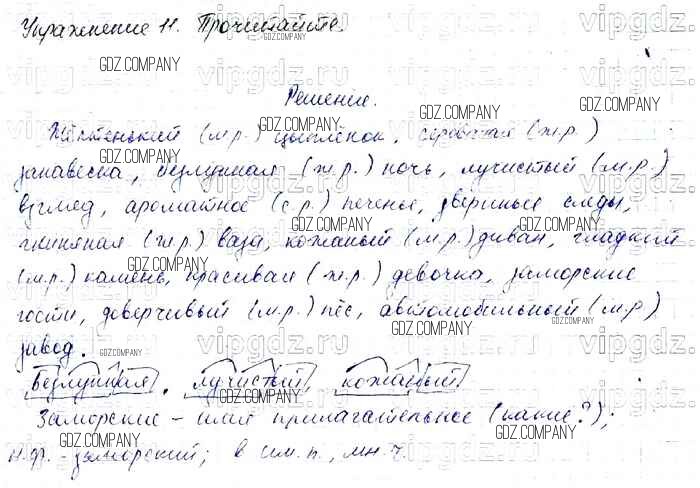 Упражнение 11. Прочитайте.
Решение.
Жёлтенький (м.р.) цыплёнок, сероватая (ж.р.)
занавеска, безлунная (ж.р.) ночь, лучистый (м.р.)
взгляд, ароматное (с.р.) печенье, звериные следы,
глиняная (ж.р.) ваза, кожаный (м.р.) диван, гладкий
(м.р.) камень, красивая (ж.р.) девочка, заморские
гости, доверчивый (м.р.) пёс, автомобильный (м.р)
завод.
Безлунная, лучистый кожаный
Заморские – имя прилагательное (какие?);
н.ф. - заморский; в им.п., мн.ч.